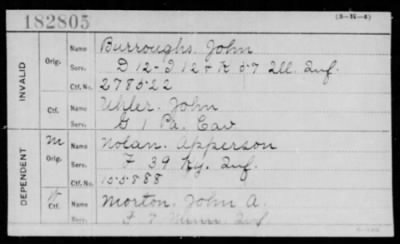 182805
(3-W-8)
INVALID
Orig. Name Burroughs, John
Serv. D 12 - I 12 & K 57 Ill. Inf.
Ctf. No. 278522
Ctf. Name Uhler, John
Serv. G 1 Pa. Cav
DEPENDENT
M Orig. Name Nolan, Apperson
Serv. F 39 Ky. Inf.
Ctf. No. 155888
Ctf. Name Morton, John A.
Serv. F 7 Minn. Inf.